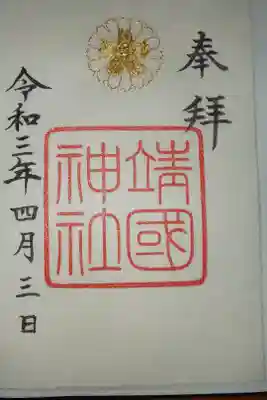 奉拝
靖國
神社
令和三年四月三日